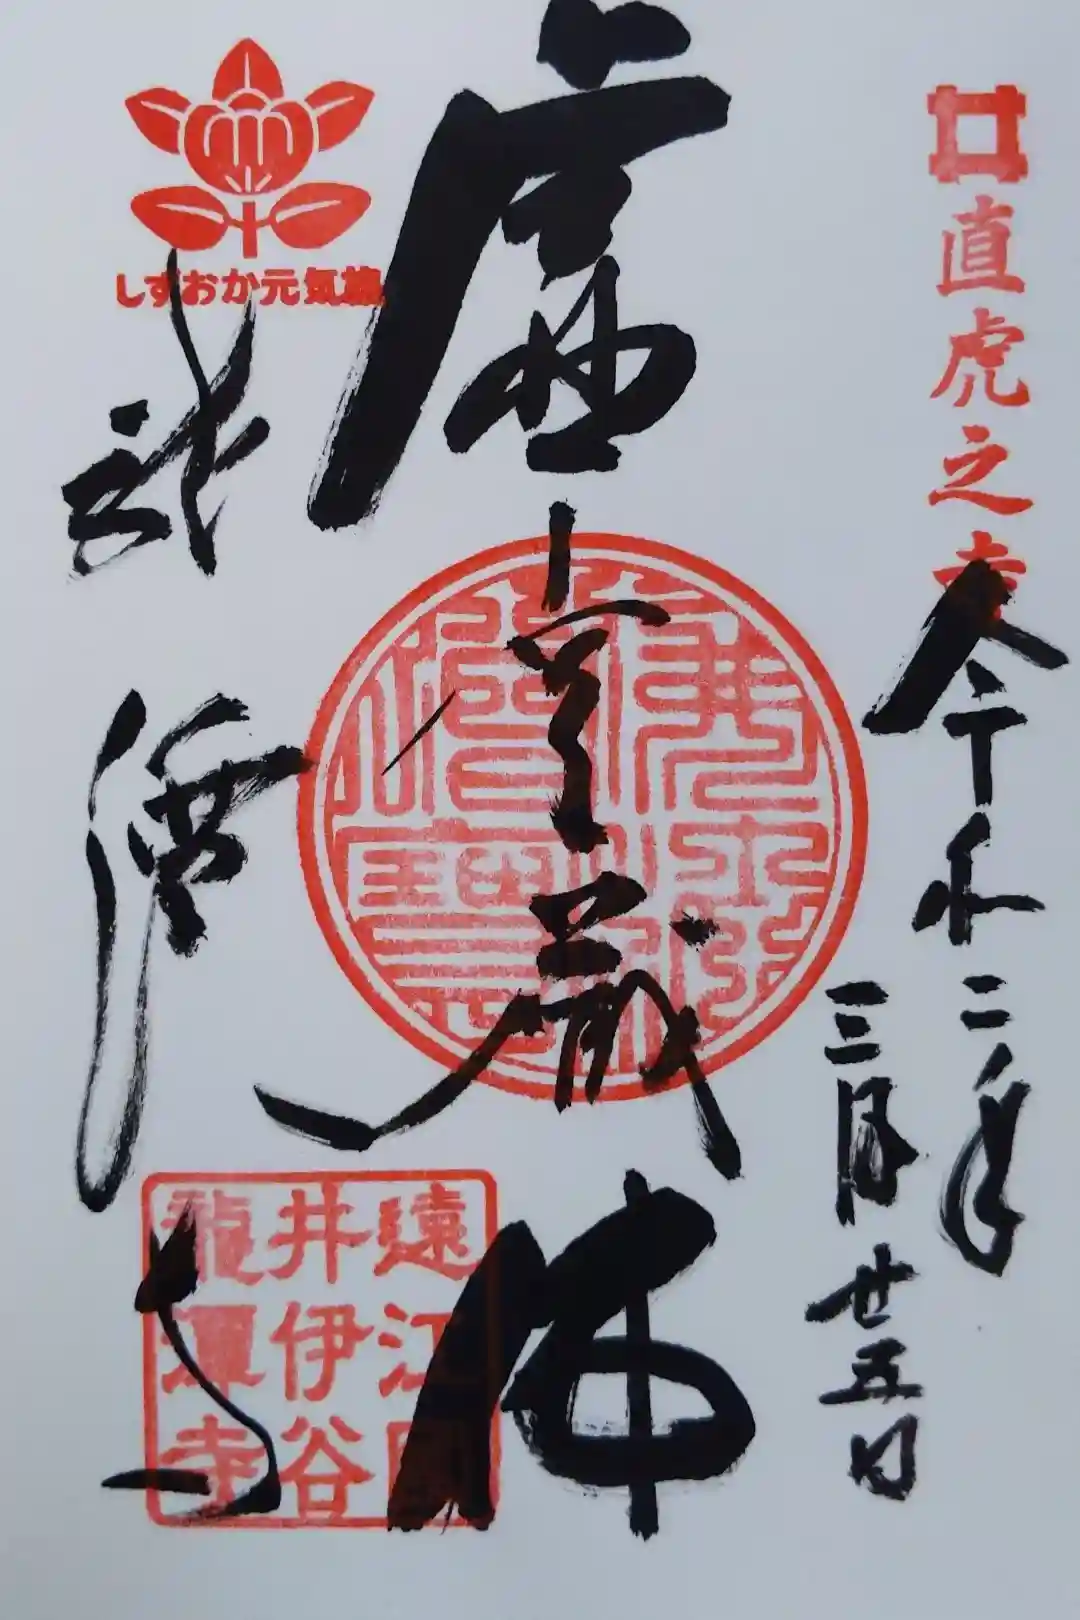 直虎之寺
令和二年
三月廿五日
虚空蔵佛
しずおか元気旅
龍潭寺
遠江國
井伊谷
龍潭寺